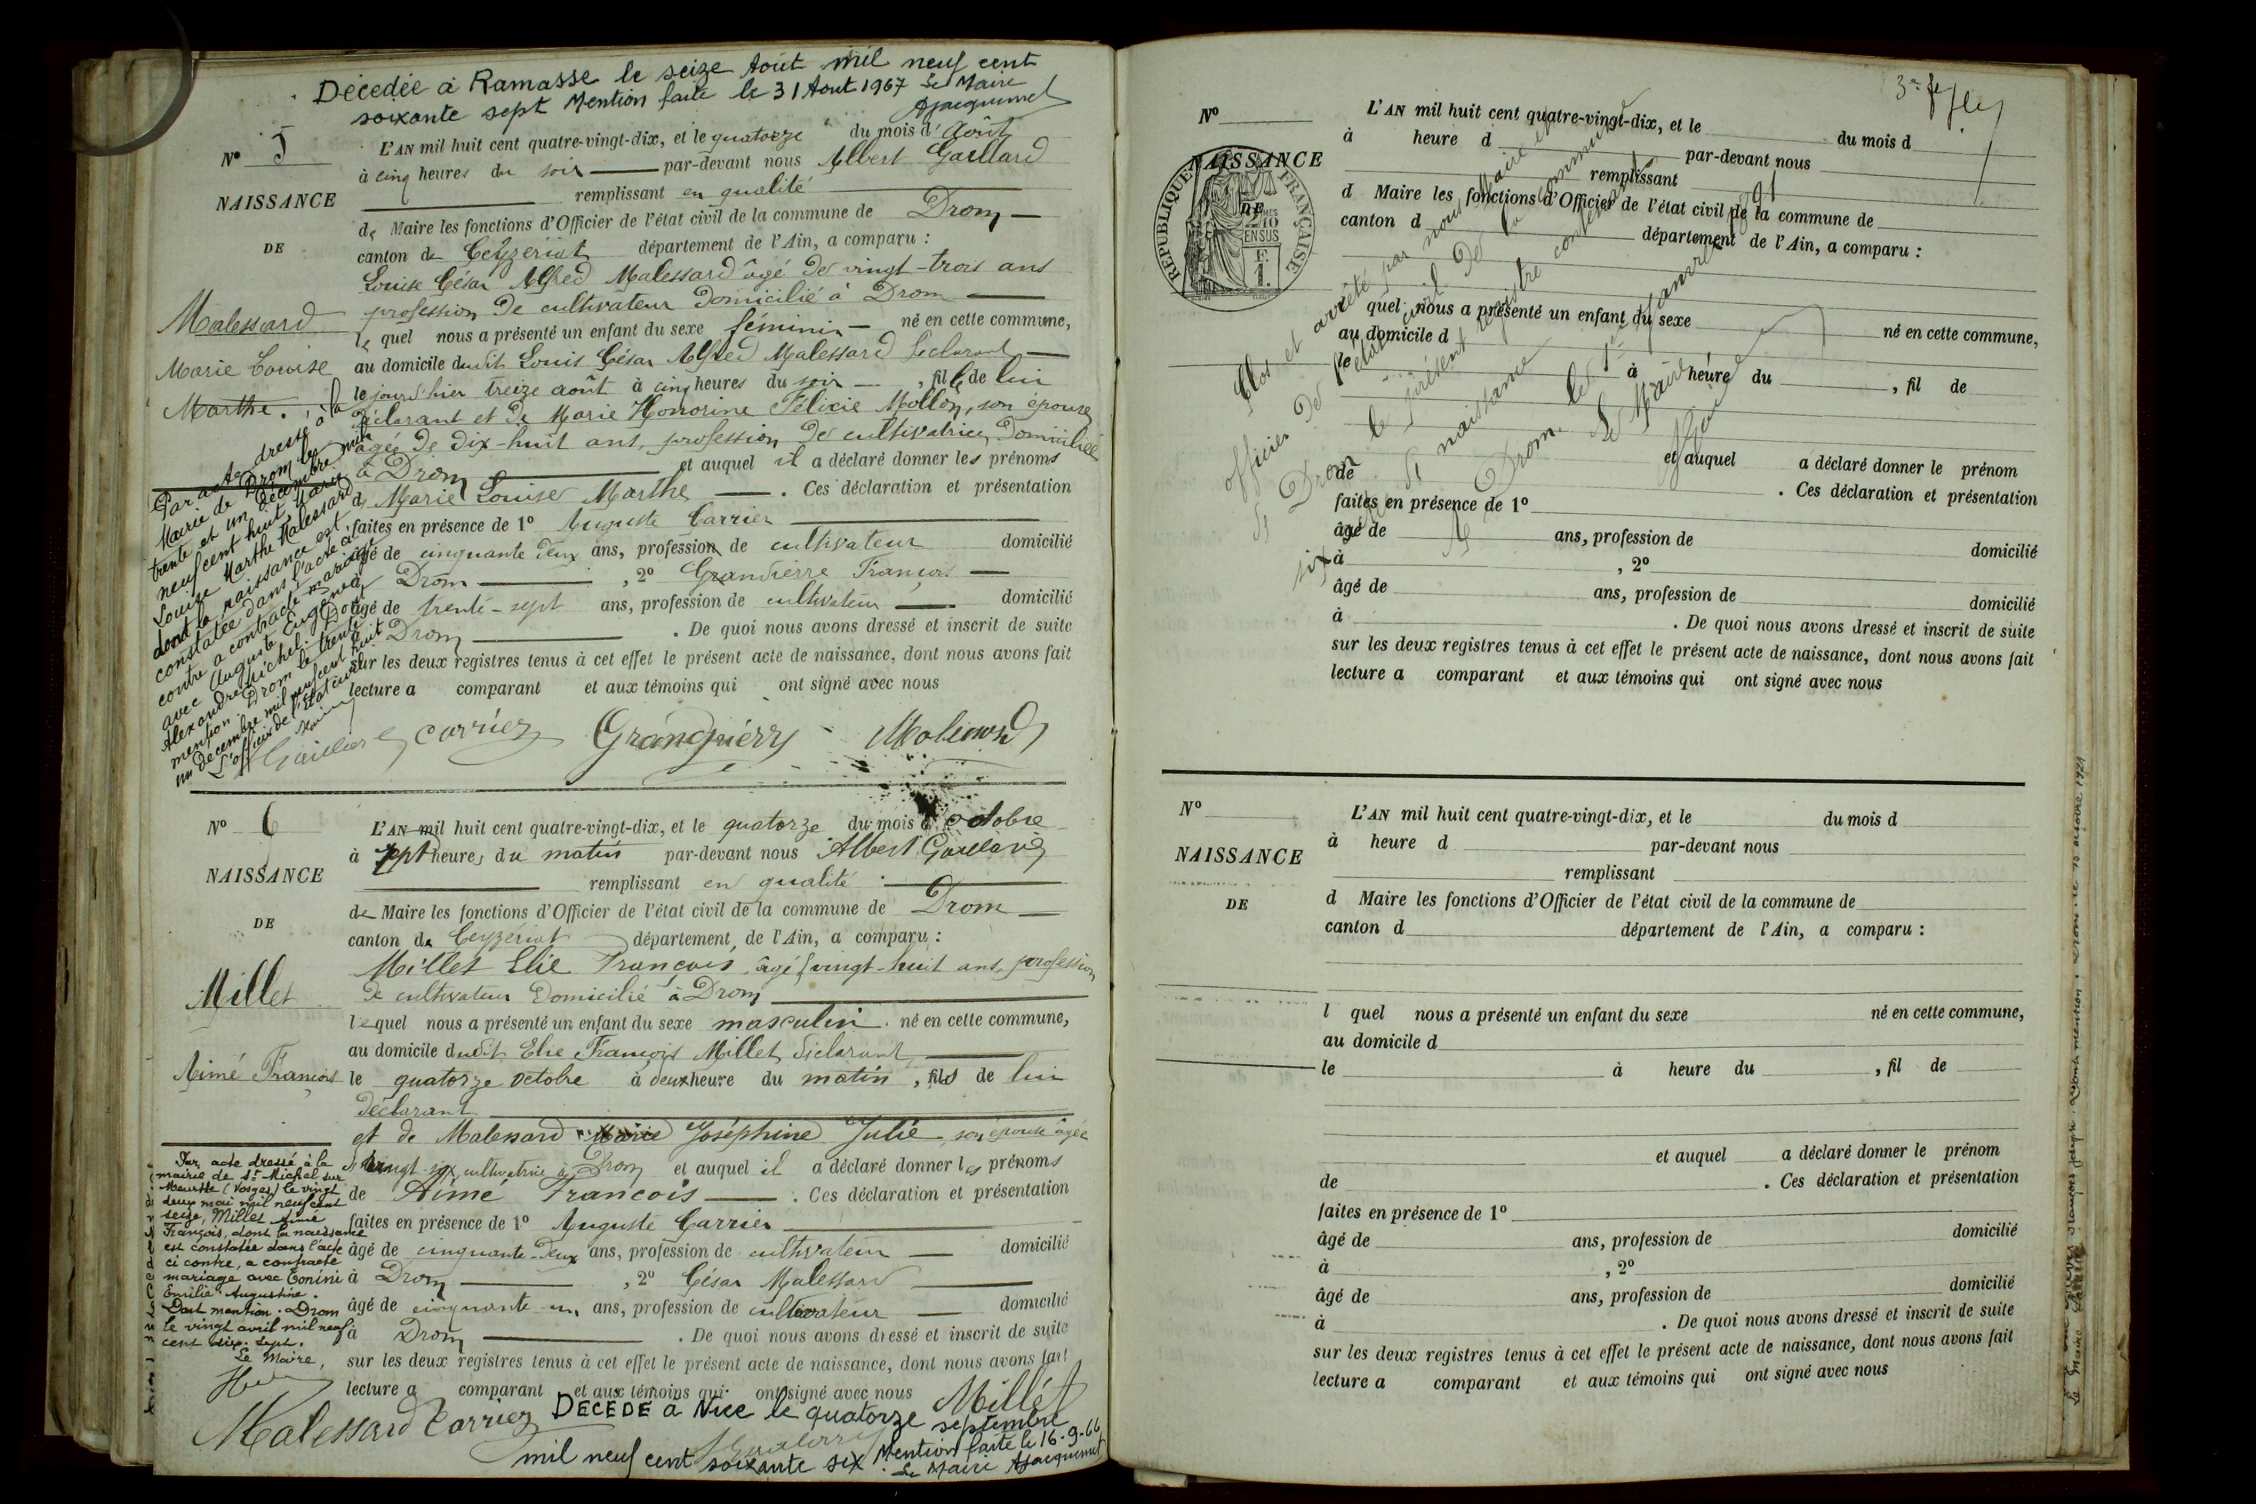 Décédée à Ramasse le seize Août mil neuf cent
soixante sept Mention faite le 31 Aout 1967 Le Maire
AJacquemet
N° 5
NAISSANCE
DE
Malessard
Marie Louise
Marthe.
L'AN mil huit cent quatre-vingt-dix, et le quatorze du mois d'Août
à cinq heures du soir par-devant nous Albert Gaillard
remplissant en qualité
de Maire les fonctions d'Officier de l'état civil de la commune de Drom
canton de Ceyzériat département de l'Ain, a comparu :
Louis César Alfred Malessard âgé de vingt-trois ans
profession de cultivateur domicilié à Drom
lequel nous a présenté un enfant du sexe féminin né en cette commune,
au domicile dudit Louis César Alfred Malessard déclarant
le jour d'hier treize août à cinq heures du soir, fille de lui
déclarant et de Marie Honorine Félicie Mollon, son épouse
âgée de dix-huit ans, profession de cultivatrice, domiciliée
à Drom et auquel il a déclaré donner les prénoms
d Marie Louise Marthe. Ces déclaration et présentation
faites en présence de 1° Auguste Carrier
âgé de cinquante deux ans, profession de cultivateur domicilié
Drom, 2° Grandpierre François
âgé de trente-sept ans, profession de cultivateur domicilié
Drom. De quoi nous avons dressé et inscrit de suite
sur les deux registres tenus à cet effet le présent acte de naissance, dont nous avons fait
lecture a comparant et aux témoins qui ont signé avec nous
Par acte dressé à la
Mairie de Drom le
trente et un décembre mil
neuf cent huit, Marie
Louise Marthe Malessard
dont la naissance est
constatée dans l'acte ci
contre a contracté mariage
avec Auguste Eugène
Alexandre Michel. Dont
mention. Drom le trente
un décembre mil neuf cent huit
L'officier de l'état civil
Gaillard Carrier Grandpierry Malessard
N° 6
NAISSANCE
DE
Millet
Aimé François
L'AN mil huit cent quatre-vingt-dix, et le quatorze du mois d'octobre
à sept heures du matin par-devant nous Albert Gaillard
remplissant en qualité
de Maire les fonctions d'Officier de l'état civil de la commune de Drom
canton de Ceyzériat département de l'Ain, a comparu :
Millet Elie François âgé vingt-huit ans, profession
de cultivateur domicilié à Drom
lequel nous a présenté un enfant du sexe masculin né en cette commune,
au domicile dudit Elie François Millet déclarant
le quatorze octobre à deux heure du matin, fils de lui
déclarant
et de Malessard Marie Joséphine Julie son épouse âgée
de vingt-six cultivatrice à Drom et auquel il a déclaré donner les prénoms
de Aimé François. Ces déclaration et présentation
faites en présence de 1° Auguste Carrier
âgé de cinquante-deux ans, profession de cultivateur domicilié
à Drom, 2° César Malessard
âgé de cinquante-un ans, profession de cultivateur domicilié
à Drom. De quoi nous avons dressé et inscrit de suite
sur les deux registres tenus à cet effet le présent acte de naissance, dont nous avons fait
lecture a comparant et aux témoins qui ont signé avec nous
Par acte dressé à la
mairie de St Michel sur
Meurthe (Vosges) le vingt
deux mai mil neuf cent
seize, Millet Aimé
François, dont la naissance
est constatée dans l'acte
ci contre, a contracté
mariage avec Tonini
Emilie Augustine.
Dont mention. Drom
le vingt avril mil neuf
cent dix-sept.
Le Maire,
Malessard Carrier Millet
DECEDE à Nice le quatorze septembre
mil neuf cent soixante six Mention faite le 16-9-66
Le Maire AJacquemet
N°
NAISSANCE
DE
RÉPUBLIQUE FRANÇAISE
L'AN mil huit cent quatre-vingt-dix, et le du mois d
à heure d par-devant nous
remplissant
d Maire les fonctions d'Officier de l'état civil de la commune de
canton d département de l'Ain, a comparu :
quel nous a présenté un enfant du sexe né en cette commune,
au domicile d
le à heure du, fil de
et auquel a déclaré donner le prénom
de. Ces déclaration et présentation
faites en présence de 1°
âgé de ans, profession de domicilié
à, 2°
âgé de ans, profession de domicilié
à. De quoi nous avons dressé et inscrit de suite
sur les deux registres tenus à cet effet le présent acte de naissance, dont nous avons fait
lecture a comparant et aux témoins qui ont signé avec nous
Clos et arrêté par nous Maire et
officier de l'état civil de la commune
de Drom le présent registre contenant
six actes de naissance
A Drom le 1er Janvier 1891
Le Maire
N°
NAISSANCE
DE
L'AN mil huit cent quatre-vingt-dix, et le du mois d
à heure d par-devant nous
remplissant
d Maire les fonctions d'Officier de l'état civil de la commune de
canton d département de l'Ain, a comparu :
l quel nous a présenté un enfant du sexe né en cette commune,
au domicile d
le à heure du, fil de
et auquel a déclaré donner le prénom
de. Ces déclaration et présentation
faites en présence de 1°
âgé de ans, profession de domicilié
à, 2°
âgé de ans, profession de domicilié
à. De quoi nous avons dressé et inscrit de suite
sur les deux registres tenus à cet effet le présent acte de naissance, dont nous avons fait
lecture a comparant et aux témoins qui ont signé avec nous